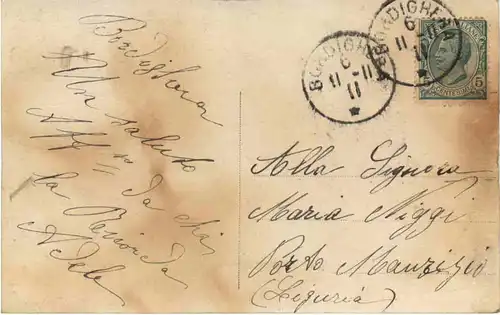 Bordighera
Un saluto
Aff da chi
la Ricorda
Adele
BORDIGHERA
6
11-11
11
BORDIGHERA
6
11
5
Alla Signora
Maria Niggi
Porto Maurizio
(Liguria)